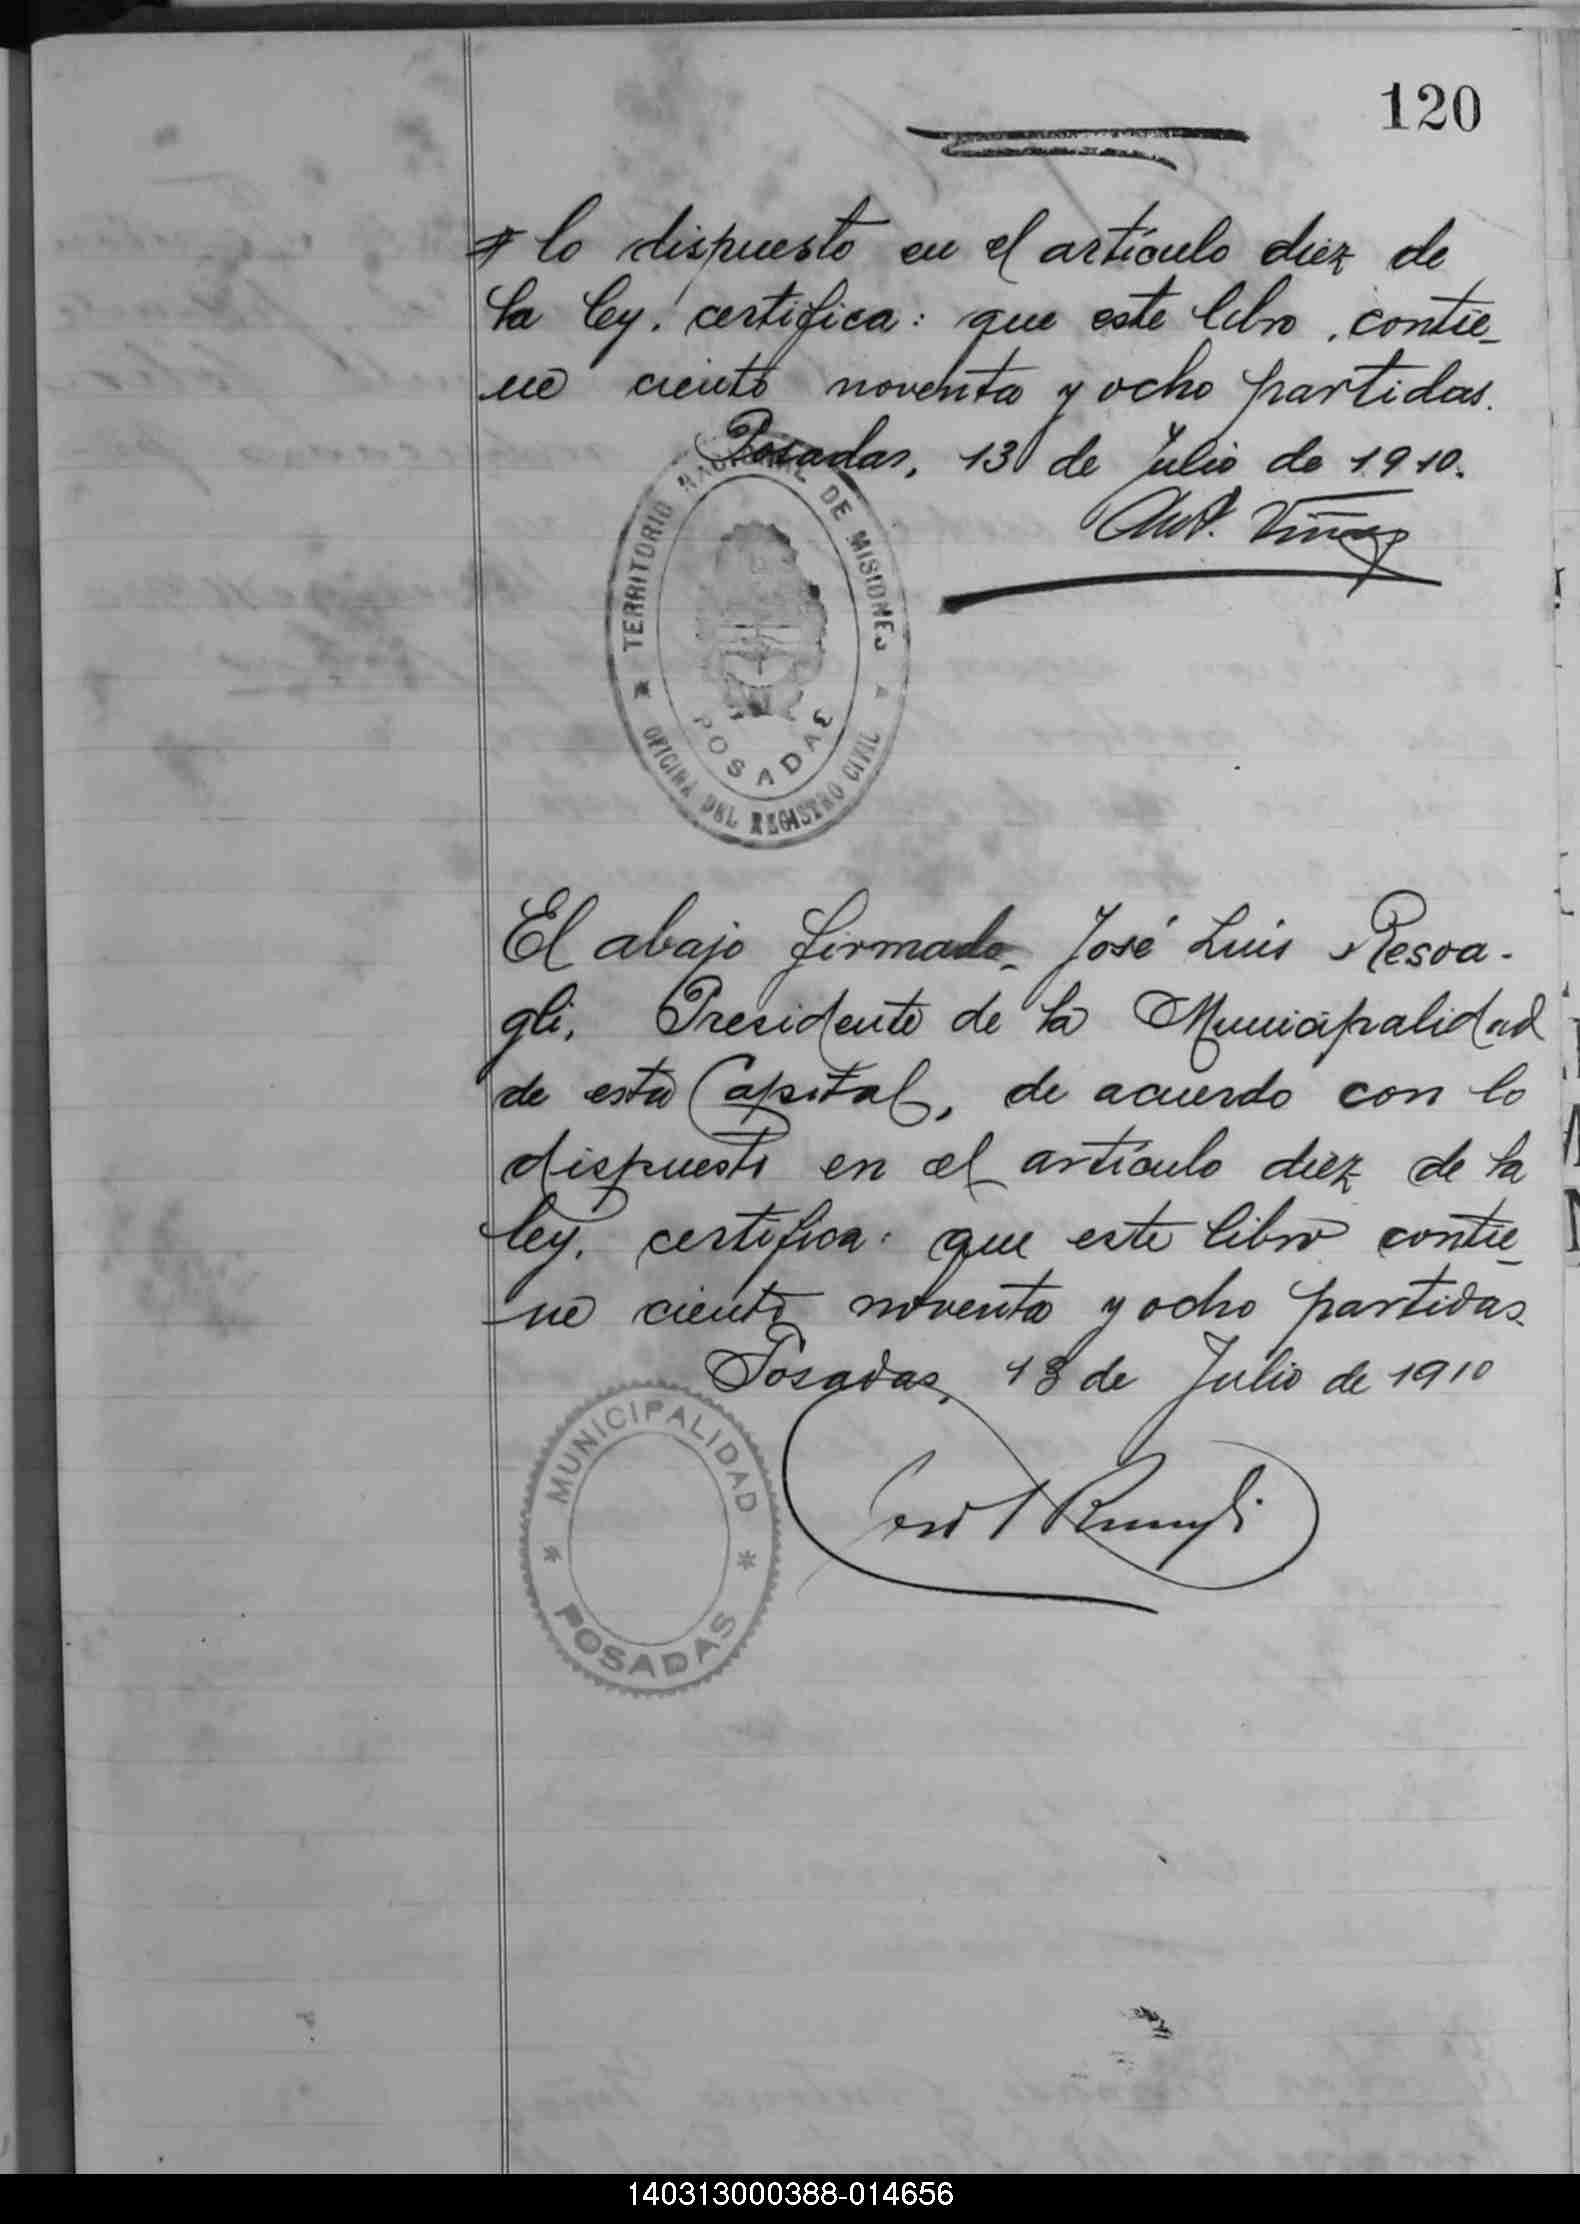 120
lo dispuesto en el artículo diez de
la ley, certifica: que este libro, contie-
ne ciento noventa y ocho partidas.
Posadas, 13 de Julio de 1910.
Ant. Viñas
TERRITORIO NACIONAL DE MISIONES
POSADAS
OFICINA DEL REGISTRO CIVIL
El abajo firmado, José Luis Resoa-
gli, Presidente de la Municipalidad
de esta Capital, de acuerdo con lo
dispuesto en el artículo diez de la
ley, certifica: que este libro contie-
ne ciento noventa y ocho partidas
Posadas, 13 de Julio de 1910
MUNICIPALIDAD
POSADAS
140313000388-014656